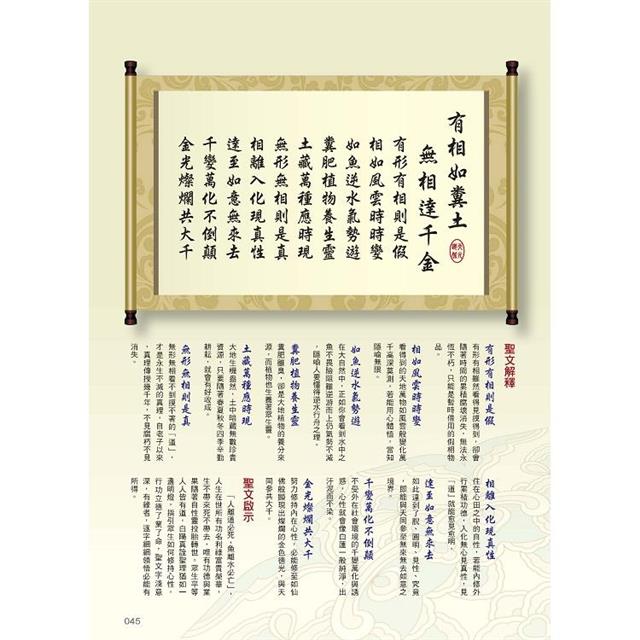 有相如糞土
無相達千金
有形有相則是假
相如風雲時時變
如魚逆水氣勢遊
糞肥植物養生靈
土藏萬種應時現
無形無相則是真
相離入化現真性
達至如意無來去
千變萬化不倒顛
金光燦爛共大千
聖文解釋
有形有相則是假
有形有相雖然看得見摸得到,卻會
隨著時間的累積腐壞消失,無法永
恆不朽,只能是暫時借用的假相物
品。
相如風雲時時變
看得到的天地萬物如風雲般變化萬
千高深莫測,若能用心體悟,當知
隱喻無限。
如魚逆水氣勢遊
在大自然中,正如你會看到水中之
魚不畏險阻難逆游而上仍氣勢不減
,隱喻人要懂得逆水行舟之理。
糞肥植物養生靈
糞肥雖臭,卻是大地植物的養分來
源,而植物也生養著眾生靈。
土藏萬種應時現
大地生機盎然,土中暗藏無數珍貴
資源,只要隨著春夏秋冬四季辛勤
耕耘,就會有好收成。
無形無相則是真
無形無相看不到摸不著的「道」,
才是永生不滅的真理,自老子以來
,真理傳授幾千年,不見腐朽不見
消失。
相離入化現真性
住在心田之中的自性,若能內修外
行累積功德,入化無心見真性,見
「道」就能愈見愈明。
達至如意無來去
如此達到了脫、圓明、見性、究竟
,即能與天同參至無來無去如意之
境界。
千變萬化不倒顛
不受外在社會環境的千變萬化與誘
惑,心性就會像白蓮一般純淨,出
汙泥而不染。
金光燦爛共大千
努力修持內在心性,必能修至如仙
佛般顯現出燦爛的金色德光,與天
同參共大千。
聖文啟示
「人離道必死,魚離水必亡」,
人生在世所有功名利祿富貴榮華,
生不帶來死不帶去,唯有功德與業
果隨著自性靈投胎轉世。眾生平等
人人皆有道,白陽真詮聖理猶如一
盞明燈,指引眾生如何修持心性,
行功立德了業了命,聖文字淺意
深,有緣者,逐字細細領悟必能有
所得。
045